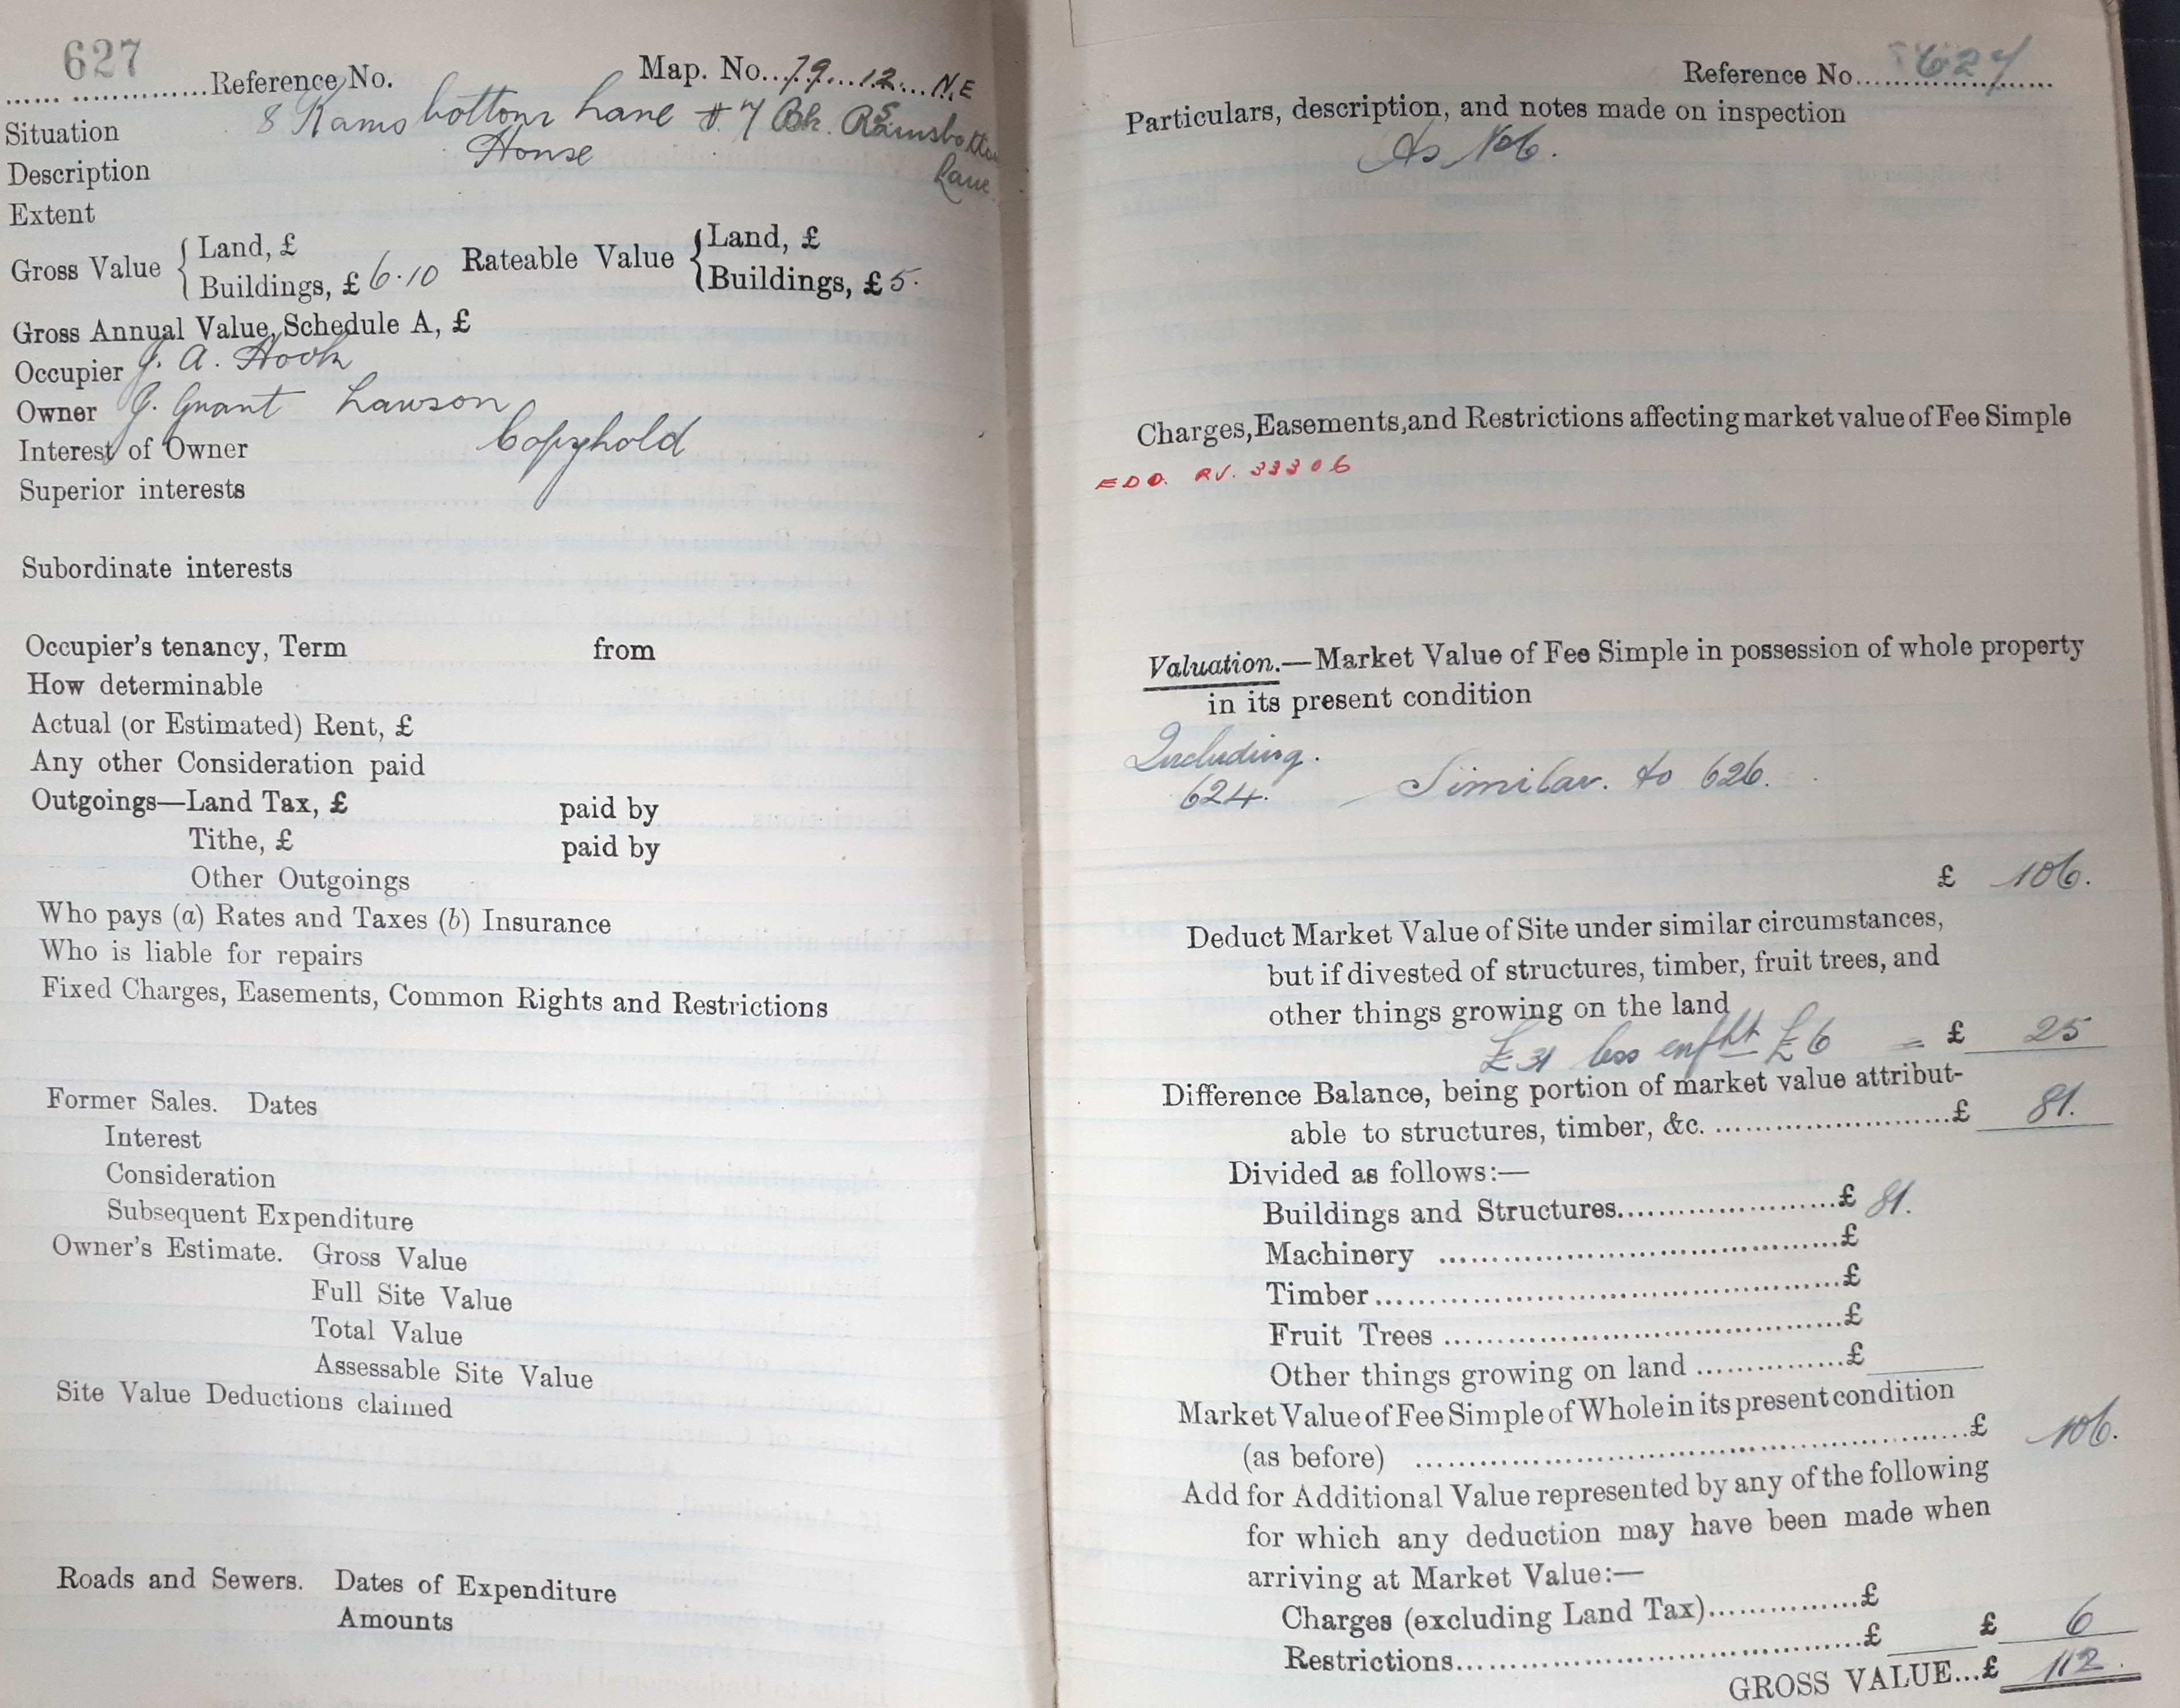 627
Reference No. Map. No. 79 12 N.E
Situation 8 Ramsbottom Lane & 7 Bk. Ramsbottom
Description House Lane
Extent
Gross Value { Land, £ Rateable Value { Land, £
Buildings, £ 6.10 Buildings, £ 5.
Gross Annual Value, Schedule A, £
Occupier J. A. Hook
Owner J. Grant Lawson
Interest of Owner Copyhold
Superior interests
Subordinate interests
Occupier's tenancy, Term from
How determinable
Actual (or Estimated) Rent, £
Any other Consideration paid
Outgoings—Land Tax, £ paid by
Tithe, £ paid by
Other Outgoings
Who pays (a) Rates and Taxes (b) Insurance
Who is liable for repairs
Fixed Charges, Easements, Common Rights and Restrictions
Former Sales. Dates
Interest
Consideration
Subsequent Expenditure
Owner's Estimate. Gross Value
Full Site Value
Total Value
Assessable Site Value
Site Value Deductions claimed
Roads and Sewers. Dates of Expenditure
Amounts
Reference No. 627
Particulars, description, and notes made on inspection
As No 6.
Charges, Easements, and Restrictions affecting market value of Fee Simple
EDO. RV. 33306
Valuation.—Market Value of Fee Simple in possession of whole property
in its present condition
Including.
624. — Similar. to 626.
£ 106.
Deduct Market Value of Site under similar circumstances,
but if divested of structures, timber, fruit trees, and
other things growing on the land
£31 less enfht £6 = £ 25
Difference Balance, being portion of market value attribut-
able to structures, timber, &c. £ 81.
Divided as follows:—
Buildings and Structures £ 81.
Machinery £
Timber £
Fruit Trees £
Other things growing on land £
Market Value of Fee Simple of Whole in its present condition
(as before) £ 106.
Add for Additional Value represented by any of the following
for which any deduction may have been made when
arriving at Market Value:—
Charges (excluding Land Tax) £
Restrictions £ £ 6
GROSS VALUE...£ 112.